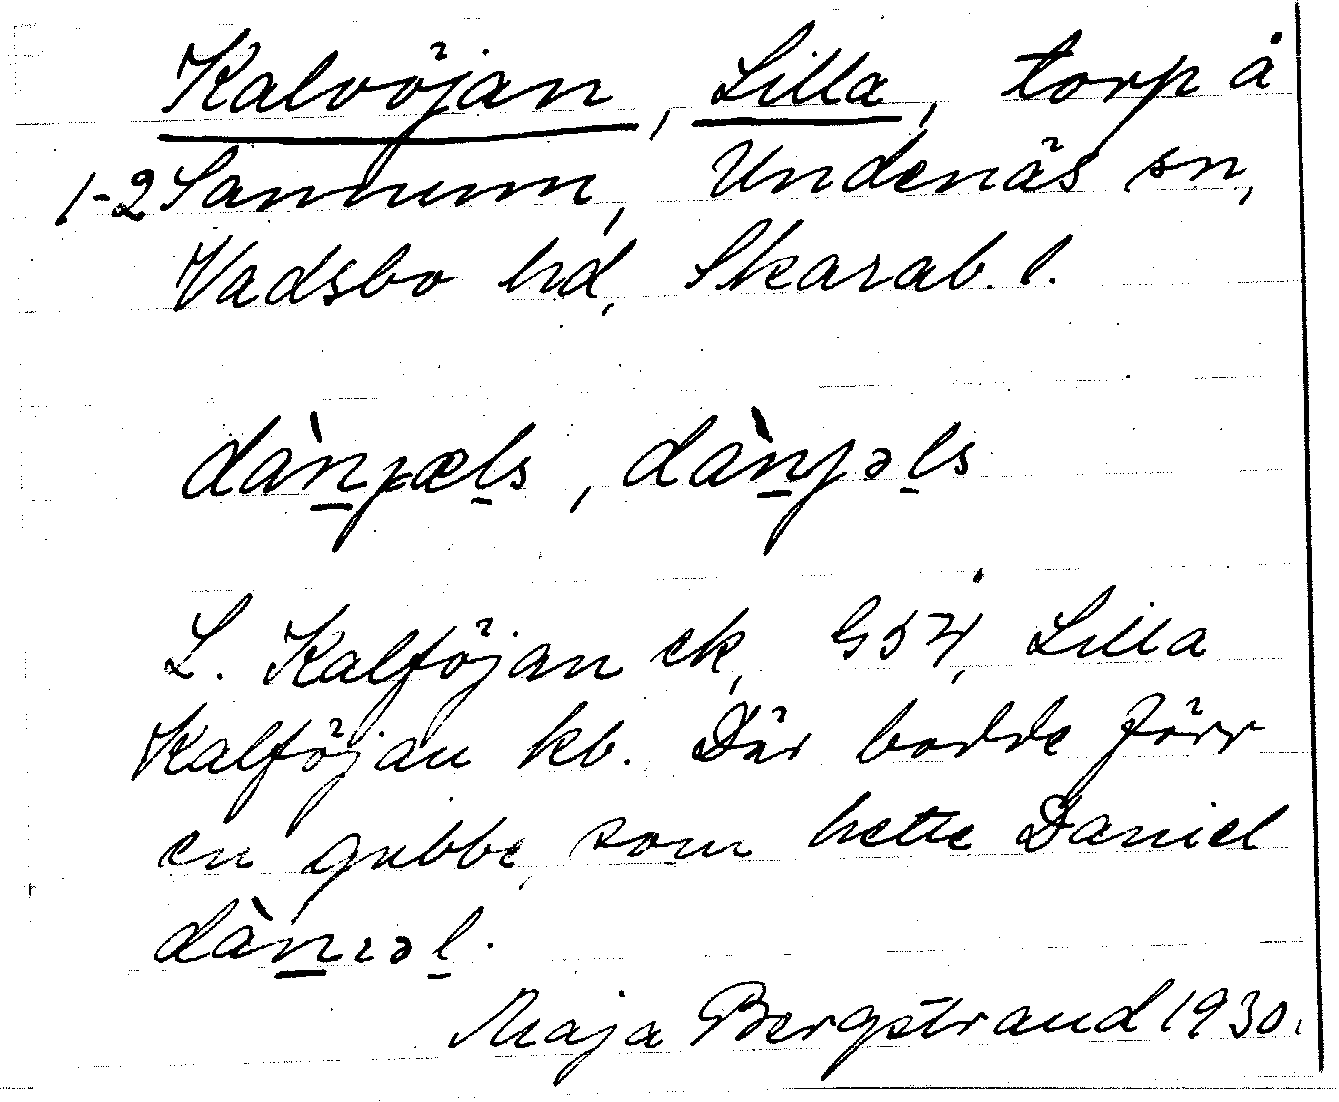 Kalvöjan, Lilla, torp å
1-2 Sannum, Undenäs sn,
Vadsbo hd, Skarab. l.
dàn̲jæl̲s, dàn̲jəl̲s
L. Kalföjan ek, G57, Lilla
Kalföjan kb. Där bodde förr
en gubbe, som hette Daniel
dàn̲ɪəl̲.
Maja Bergstrand 1930.